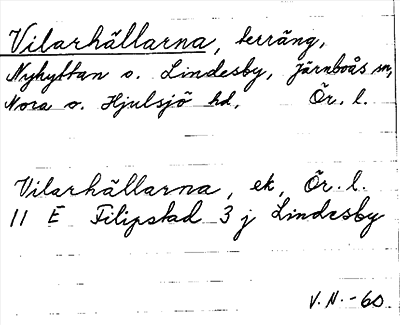 Vilarhällarna, terräng,
Nyhyttan o. Lindesby, Järnboås sn,
Nora o. Hjulsjö hd, Ör. l.
Vilarhällarna, ek, Ör. l.
11 E Filipstad 3 j Lindesby
V.N.-60